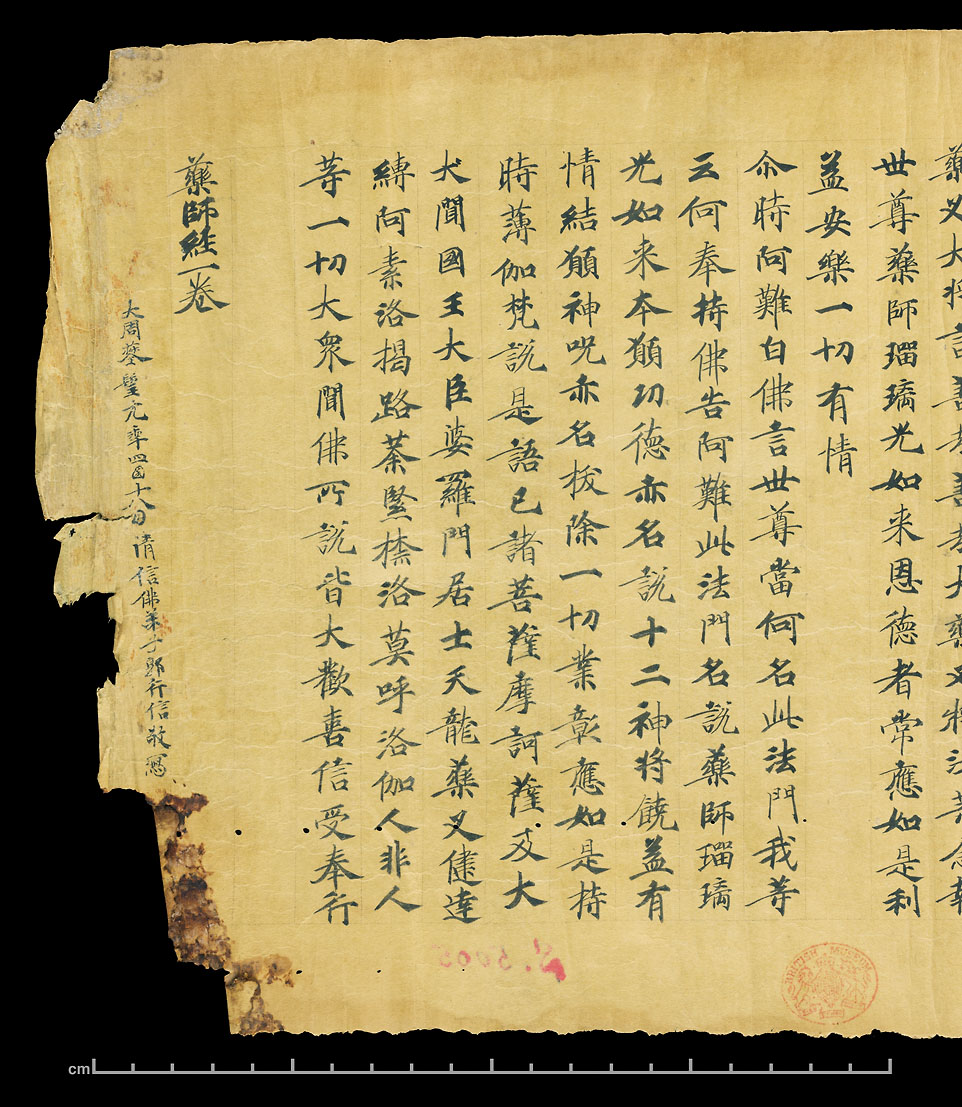 藥叉大將言善哉善哉大藥叉將汝等念報
世尊藥師瑠璃光如来恩德者常應如是利
益安樂一切有情
尒時阿難白佛言世尊當何名此法門我等
云何奉持佛告阿難此法門名説藥師瑠璃
光如来本願功德亦名説十二神將饒益有
情結願神呪亦名拔除一切業彰應如是持
時薄伽梵説是語已諸菩薩摩訶薩及大
犬聞國王大臣婆羅門居士天龍藥叉健達
縛阿素洛揭路荼緊捺洛莫呼洛伽人非人
等一切大衆聞佛所説皆大歡喜信受奉行
藥師經一卷
大周 四 十八 清信佛弟子 行信敬寫
BRITISH MUSEUM
cm